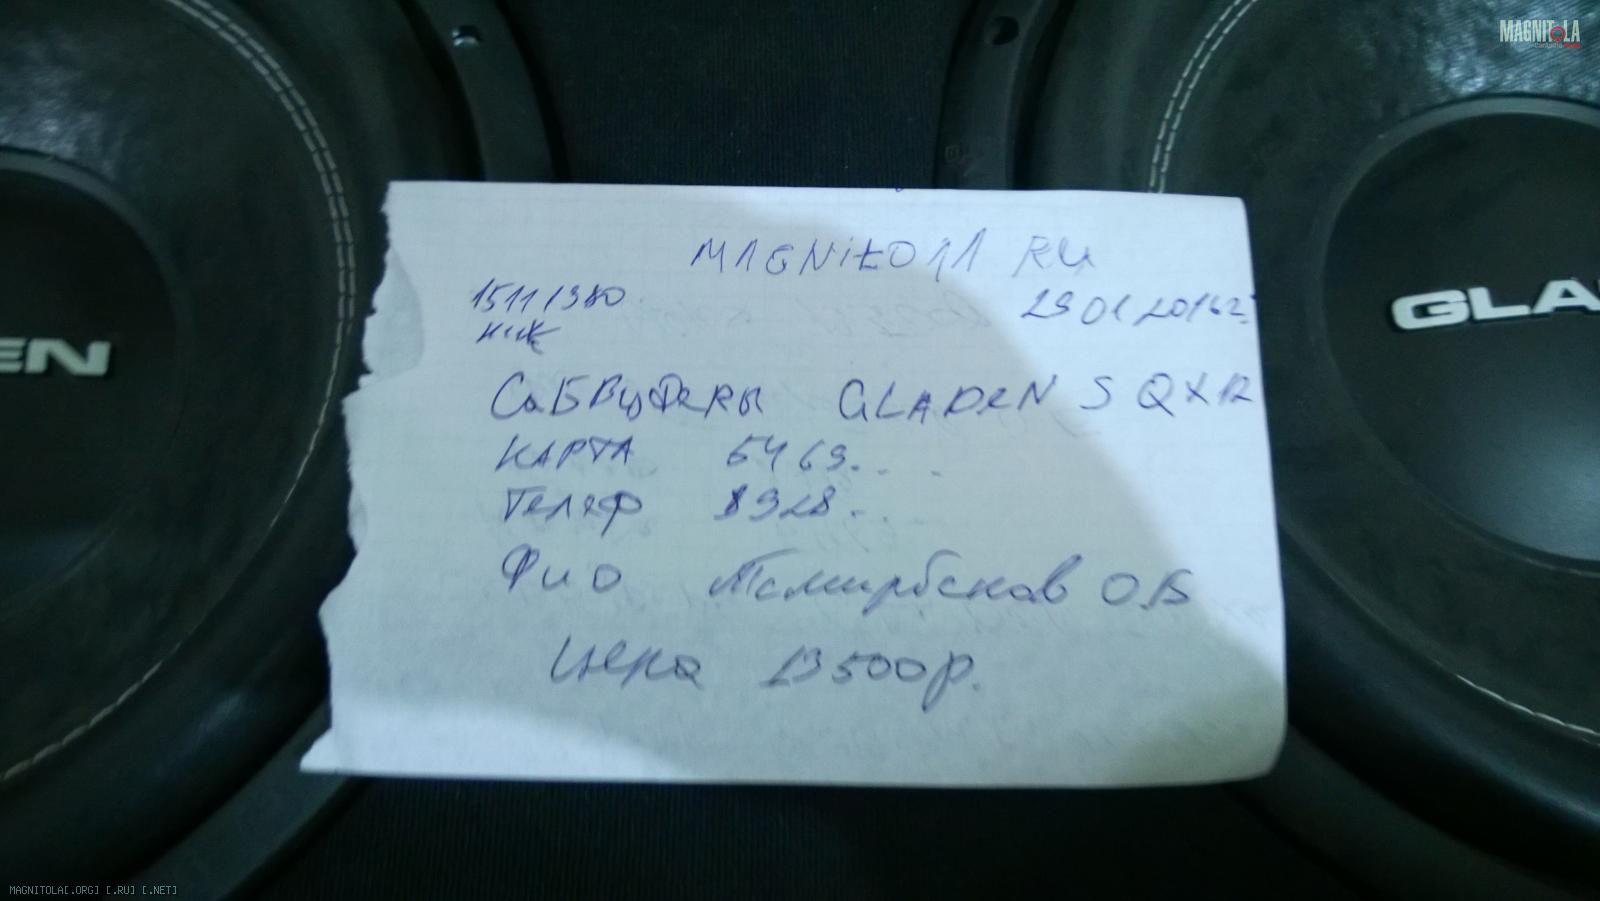 MAGNITOLA
EN
GLA
MAGNitOЛА RU
1511/380
29 01 2016г.
ник
СаБВуФеRы GLADeN SQX12
КАРТА 5469...
Телеф 8928...
Фио Темирбеков О.Б
Цена 13500р.
MAGNITOLA[.ORG] [.RU] [.NET]